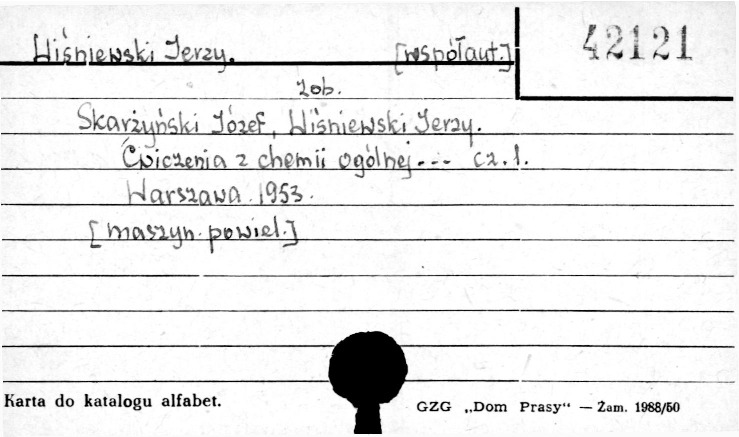 Wiśniewski Jerzy. [współaut.] 42121
zob.
Skarżyński Józef, Wiśniewski Jerzy.
Ćwiczenia z chemii ogólnej --- cz. 1.
Warszawa 1953.
[maszyn. powiel.]
Karta do katalogu alfabet.
GZG „Dom Prasy“ — Żam. 1988/50